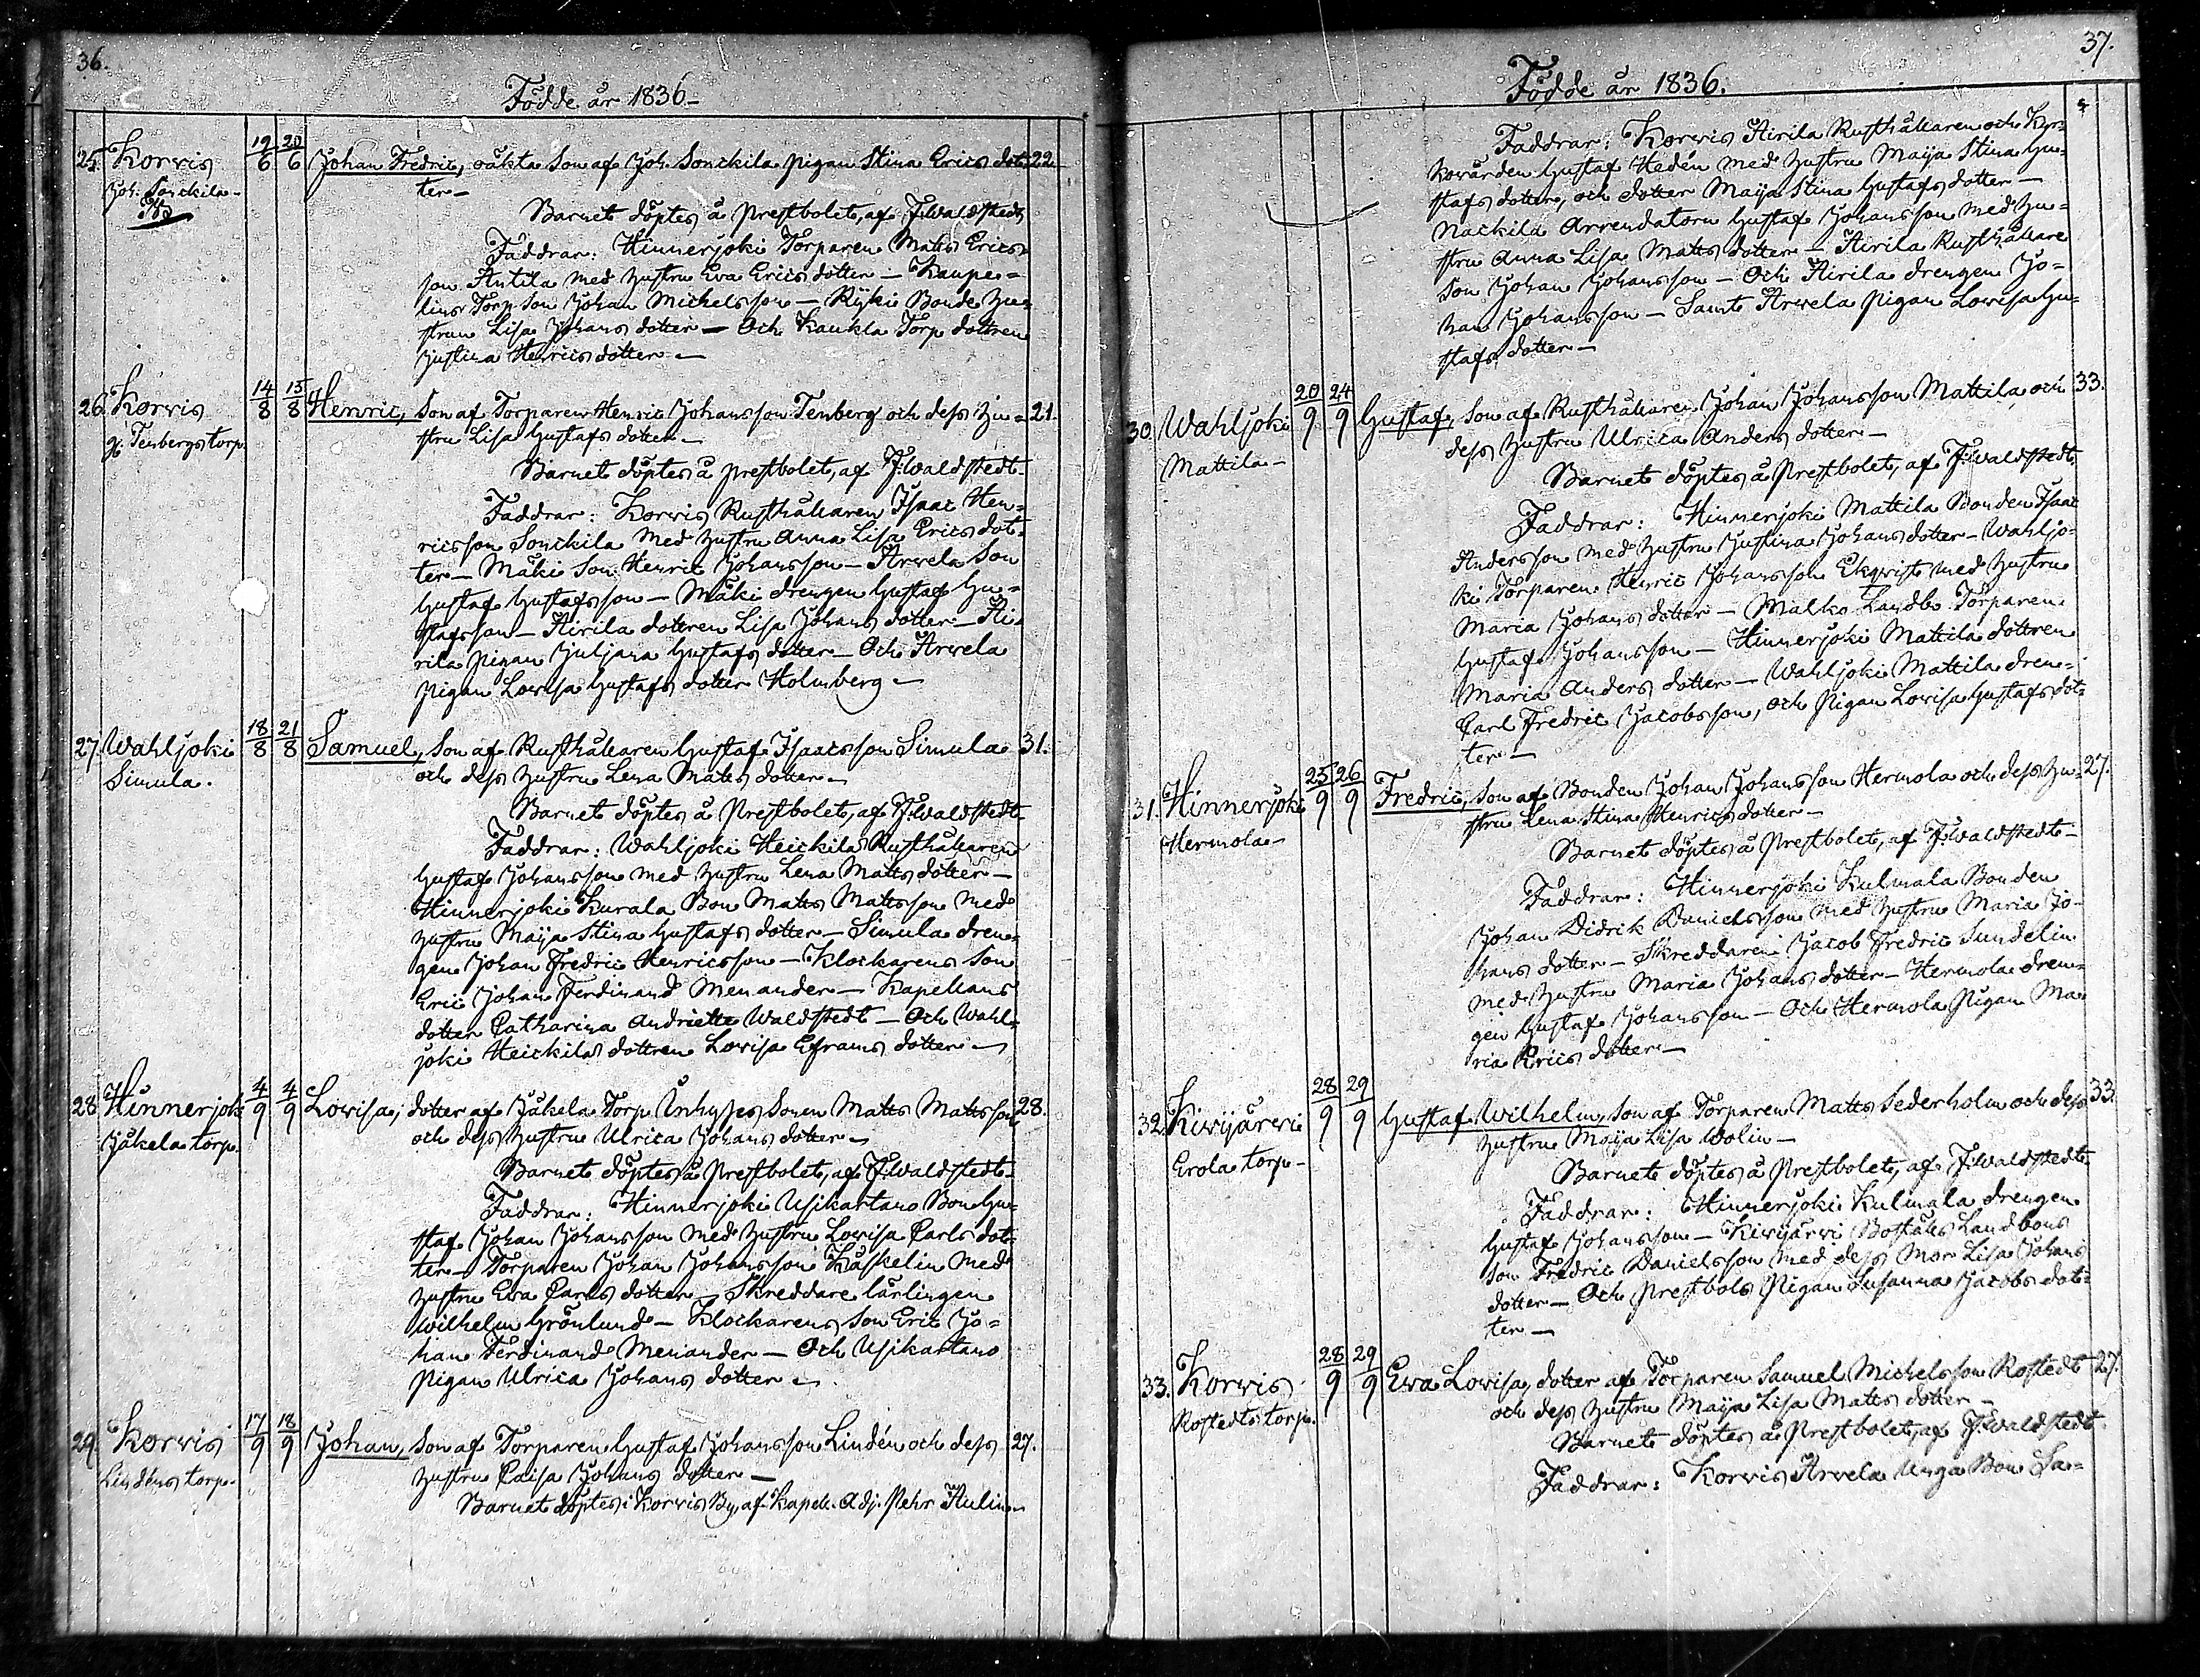 36.
Födde år 1836.
25. Korvis 19/6 20/6 Johan Fredric, oäkta Son af Joh. Sonckila pigan Stina Erics dot= 22.
Joh. Sonckila ter—
Barnet döptes å Prestbolet, af F. Waldstedt
Faddrar: Hinnerjoki Torparen Matts Erics=
son Antila med hustru Eva Erics dotter — Kaupe=
lins Torp Son Johan Michelsson — Ryki Bonde hu=
strun Lisa Johans dotter — Och Kaukla Torp dottren
Justina Henrics dotter —
26. Korvis 14/8 15/8 Henric, Son af Torparen Henric Johansson Tenberg och dess hu= 21.
Tenbergs torp. stru Lisa Gustafs dotter —
Barnet döptes å prestbolet, af F. Waldstedt
Faddrar: Korvis Rusthållaren Isaac Hen=
ricsson Sonckila med hustru Anna Lisa Erics dot=
ter — Mäki Son Henric Johansson — Arvela Son
Gustaf Gustafsson — Mäki drengen Gustaf Gu=
stafsson — Airila dottren Lisa Johans dotter — Ai=
rila pigan Juljana Gustafs dotter — Och Arvela
pigan Lovisa Gustafs dotter Holmberg —
27. Wahljoki 18/8 21/8 Samuel, Son af Rusthållaren Gustaf Isaacsson Simula 31.
Simula. och dess hustru Lena Matts dotter —
Barnet döptes å Prestbolet, af F. Waldstedt
Faddrar: Wahljoki Heickilä Rusthållaren
Gustaf Johansson med hustru Lena Matts dotter —
Hinnerjoki Kurala Bon Matts Mattsson med
hustru Maija Stina Gustafs dotter — Simula dren=
gen Johan Fredric Henricsson — Klockarens Son
Eric Johan Ferdinand Menander — Kapellans
dotter Catharina Andriette Waldstedt — Och Wahl=
joki Heickilä dottren Lovisa Eframs dotter —
28. Hinnerjoki 4/9 4/9 Lovisa, dotter af Jäkela Torp Inhyses Sonen Matts Mattsson 28.
Jäkela torp. och dess hustru Ulrica Johans dotter —
Barnet döptes å Prestbolet, af F. Waldstedt
Faddrar: Hinnerjoki Usikartano Bon Gu=
staf Johan Johansson med hustru Lovisa Carls dot=
ter — Torparen Johan Johansson Kaskelin med
hustru Eva Carls dotter — Skreddare lärlingen
Wilhelm Grönlund — Klockarens Son Eric Jo=
han Ferdinand Menander — Och Usikartano
pigan Ulrica Johans dotter —
29. Korvis 17/9 18/9 Johan, Son af Torparen Gustaf Johansson Lindén och dess 27.
Lindéns torp. hustru Caisa Johans dotter —
Barnet döptes i Korvis By, af Kapell. Adj. Pehr Aulin
37.
Födde år 1836.
Faddrar: Korvis Airila Rusthållaren och Kyr=
kovärden Gustaf Hedén med hustru Maija Stina Gu=
stafs dotter, och dotter Maija Stina Gustafs dotter —
Nackila Arrendatorn Gustaf Johansson med hu=
stru Anna Lisa Matts dotter — Airila Rusthållare
Son Johan Johansson — Och Airila drengen Jo=
han Johansson — Samt Arvela pigan Lovisa Gu=
stafs dotter —
30. Wahljoki 20/9 24/9 Gustaf, Son af Rusthållaren Johan Johansson Mattila och 33.
Mattila — dess hustru Ulrica Anders dotter —
Barnet döptes å Prestbolet, af F. Waldstedt
Faddrar: Hinnerjoki Mattila Bonden Isaac
Andersson med hustru Justina Johans dotter — Wahljo=
ki Torparen Henric Johansson Ekqvist med hustru
Maria Johans dotter — Malko Landb. Torparen
Gustaf Johansson — Hinnerjoki Mattila dottren
Maria Anders dotter — Wahljoki Mattila dren=
Carl Fredric Jacobsson, och Pigan Lovisa Gustafs dot=
ter —
31. Hinnerjoki 25/9 26/9 Fredric, Son af Bonden Johan Johansson Hermola och dess hu= 27.
Hermola — stru Lena Stina Henrics dotter —
Barnet döptes å Prestbolet, af F. Waldstedt —
Faddrar: Hinnerjoki Kulmala Bonden
Johan Didrik Danielsson med hustru Maria Jo=
hans dotter — Skreddaren Jacob Fredric Sundelin
med hustru Maria Johans dotter — Hermola dren=
gen Gustaf Johansson — Och Hermola Pigan Ma=
ria Erics dotter —
32. Kivijärvi 28/9 29/9 Gustaf Wilhelm, Son af Torparen Matts Sederholm och dess 33.
Erola torp — hustru Maija Lisa Wolin —
Barnet döptes å Prestbolet, af F. Waldstedt
Faddrar: Hinnerjoki Kulmala drengen
Gustaf Johansson — Kivijärvi Boställs Landbons
Son Fredric Danielsson med dess Mor Lisa Johans
dotter — Och Prestbols Pigan Susanna Jacobs dot=
ter —
33. Korvis 28/9 29/9 Eva Lovisa, dotter af Torparen Samuel Michelsson Rostedt 27.
Rostedts torp. och dess hustru Maija Lisa Matts dotter —
Barnet döptes å Prestbolet, af F. Waldstedt
Faddrar: Korvis Arvela Unga Bon Sa=